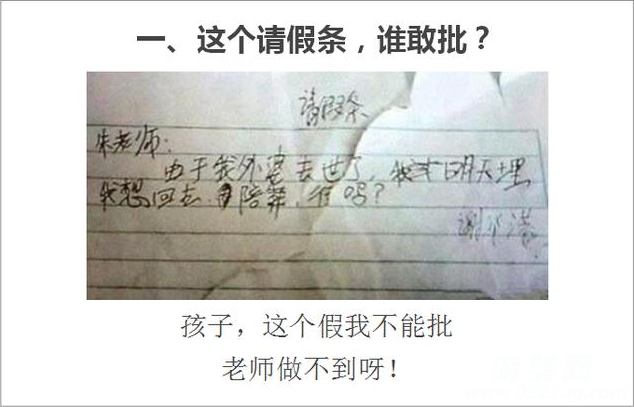 一、这个请假条，谁敢批？
请假条
朱老师：
由于我外婆去世了，我才明天埋
我想回去陪葬，行吗？
谢
孩子，这个假我不能批
老师做不到呀！